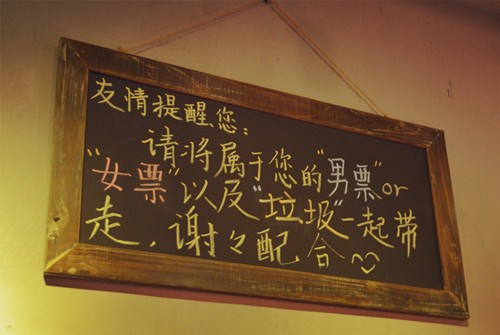 友情提醒您：
请将属于您的"男票"or
"女票"以及"垃圾"一起带
走，谢々配合